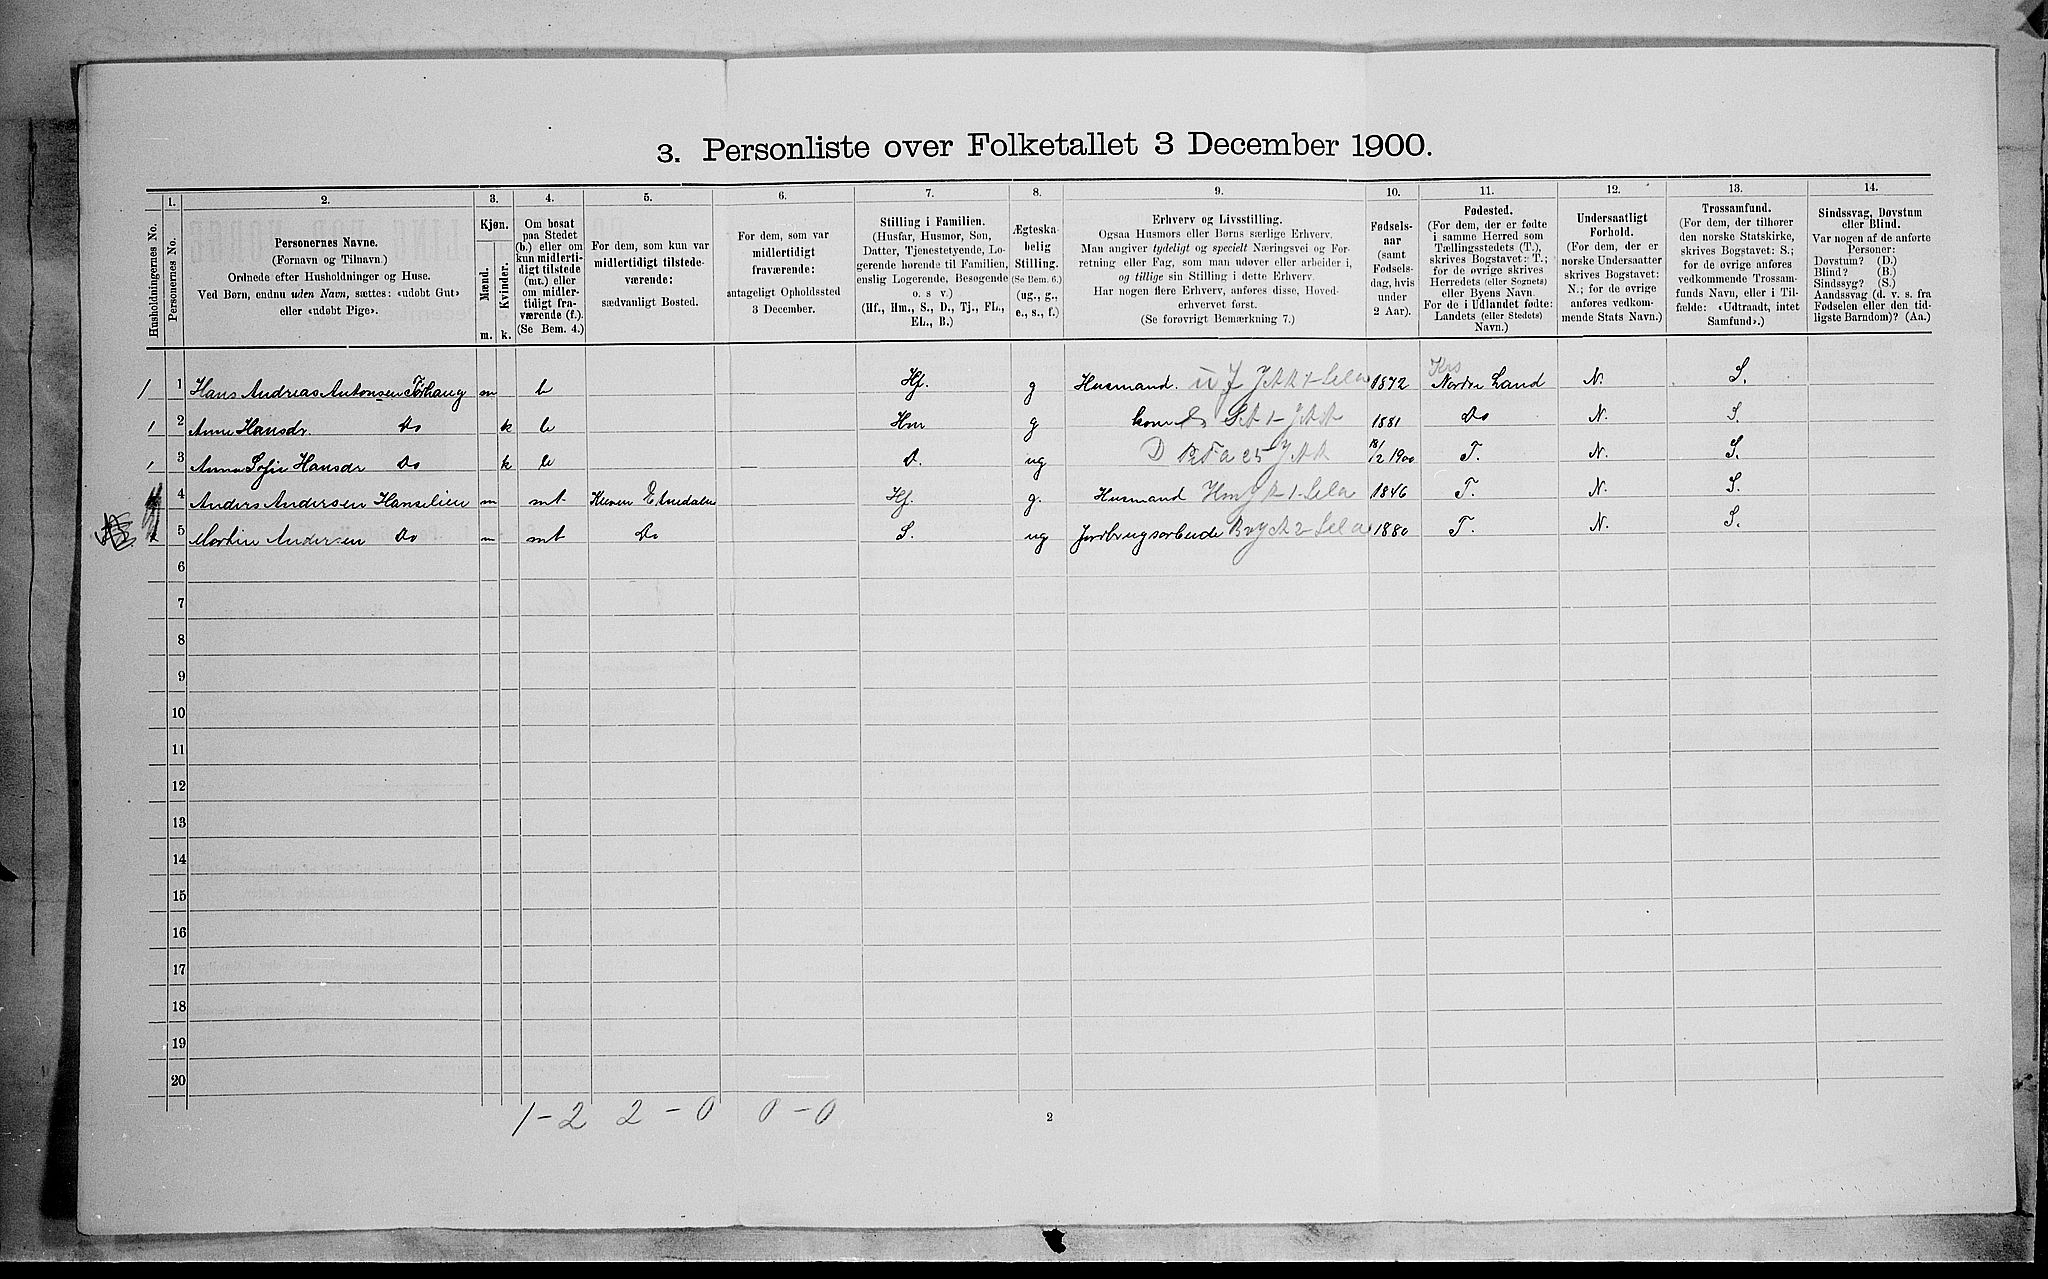 3. Personliste over Folketallet 3 December 1900.
1. 2. 3. 4. 5. 6. 7. 8. 9. 10. 11. 12. 13. 14.
Husholdningernes No.
Personernes No.
Personernes Navne.
(Fornavn og Tilnavn.)
Ordnede efter Husholdninger og Huse.
Ved Børn, endnu uden Navn, sættes: «udøbt Gut»
eller «udøbt Pige».
Kjøn.
Mænd.
Kvinder.
m. k.
Om bosat
paa Stedet
(b.) eller om
kun midlerti-
digt tilstede
(mt.) eller
om midler-
tidigt fra-
værende (f.).
(Se Bem. 4.)
For dem, som kun var
midlertidigt tilstede-
værende:
sædvanligt Bosted.
For dem, som var
midlertidigt
fraværende:
antageligt Opholdssted
3 December.
Stilling i Familien.
(Husfar, Husmor, Søn,
Datter, Tjenestetyende, Lo-
gerende hørende til Familien,
enslig Logerende, Besøgende
o. s v.)
(Hf., Hm., S., D., Tj., FL.,
EL., B.)
Ægteska-
belig
Stilling.
(Se Bem. 6.)
(ug., g.,
e., s., f.)
Erhverv og Livsstilling.
Ogsaa Husmors eller Børns særlige Erhverv.
Man angiver tydeligt og specielt Næringsvei og For-
retning eller Fag, som man udøver eller arbeider i,
og tillige sin Stilling i dette Erhverv.
Har nogen flere Erhverv, anføres disse, Hoved-
erhvervet først.
(Se forøvrigt Bemærkning 7.)
Fødsels-
aar
(samt
Fødsels-
dag, hvis
under
2 Aar).
Fødested.
(For dem, der er fødte
i samme Herred som
Tællingsstedets (T.),
skrives Bogstavet: T.;
for de øvrige skrives
Herredets (eller Sognets)
eller Byens Navn.
For de i Udlandet fødte:
Landets (eller Stedets)
Navn.)
Undersaatligt
Forhold.
(For dem, der er
norske Undersaatter
skrives Bogstavet:
N.; for de øvrige
anføres vedkom-
mende Stats Navn.)
Trossamfund.
(For dem, der tilhører
den norske Statskirke,
skrives Bogstavet: S.;
for de øvrige anføres
vedkommende Trossam-
funds Navn, eller i Til-
fælde: «Udtraadt, intet
Samfund».)
Sindssvag, Døvstum
eller Blind.
Var nogen af de anførte
Personer:
Døvstum? (D.)
Blind? (B.)
Sindssyg? (S.)
Aandssvag (d. v. s. fra
Fødselen eller den tid-
ligste Barndom)? (Aa.)
1 1 Hans Andreas Antonsen m b Hf. g Husmand. 1872 Nordre Land N. S.
1 2 Anne Hansdr. Do k b Hm g kone 1881 Do N. S.
1 3 Anna Sofie Hansdr Do k b D. ug 18/2 1900 T. N. S.
4 Anders Andersen Hanselien m mt Etnedalen Hf. g. Husmand 1846 T. N. S.
5 Martin Andersen Do m mt Do S. ug Jordbrugsarbeide 1880 T. N. S.
6
7
8
9
10
11
12
13
14
15
16
17
18
19
20
1-2 2-0 0-0
2